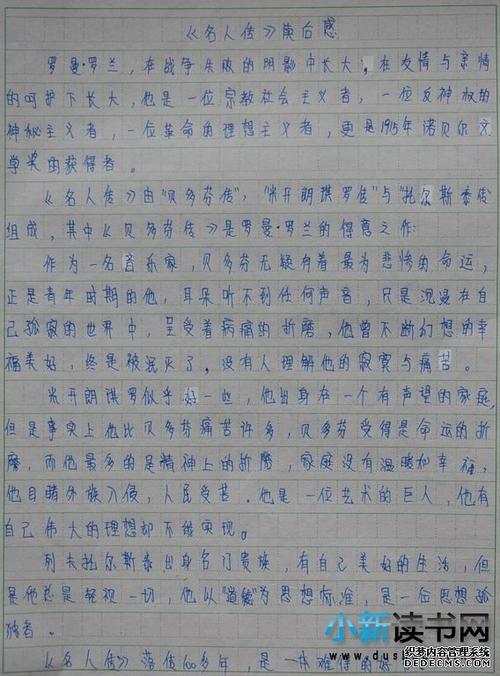 《名人传》读后感
罗曼·罗兰，在战争失败的阴影中长大，在友情与亲情
的呵护下长大，他是一位宗教社会主义者，一位反神权的
神秘主义者，一位革命的理想主义者，更是1915年诺贝尔文
学奖的获得者。
《名人传》由“贝多芬传”，“米开朗琪罗传”与“托尔斯泰传”
组成，其中《贝多芬传》是罗曼·罗兰的得意之作：
作为一名音乐家，贝多芬无疑有着最为悲惨的命运，
正是青年时期的他，耳朵听不到任何声音，只是沉漫在自
己孤寂的世界中，呈受着病痛的折磨，他曾不断幻想的幸
福美好，终是被泯灭了。没有人理解他的寂寞与痛苦。
米开朗琪罗似乎好一些，他出身在一个有声望的家庭，
但是事实上他比贝多芬痛苦许多，贝多芬受得是命运的折
磨，而他最多的是精神上的折磨，家庭没有温暖和幸福，
他目睹外族入侵，人民受苦。他是一位艺术的巨人，他有
自己伟大的理想却不能实现。
列夫托尔斯泰出身名门贵族，有自己美好的生活，但
是他总是轻视一切，他以“道德”为思想标准，是一位思想孤
独者。
《名人传》落传100多年，是一本难得的好
小新读书网
织梦内容管理系统